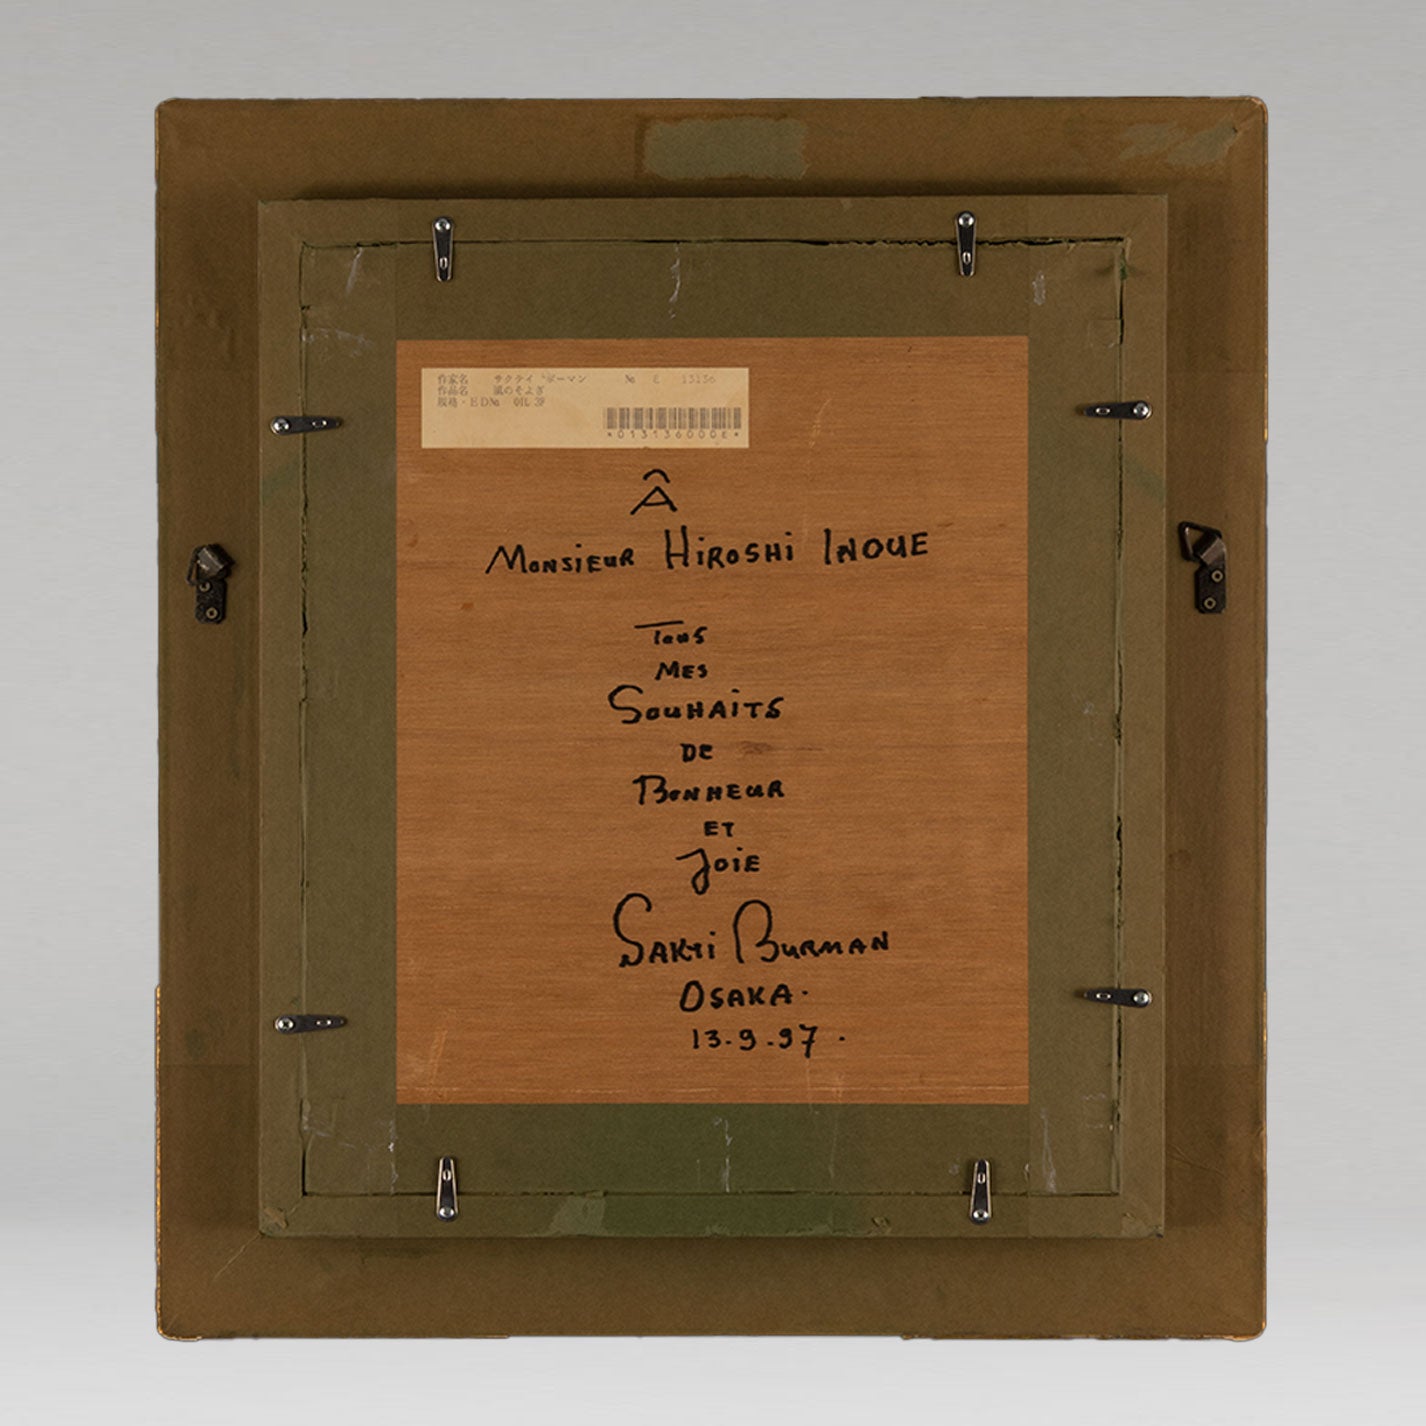 作家名 サクテイ ボーマン № E 13136
作品名 風のそよぎ
規格・ED№ OIL 3F
*013136000E*
Â
MONSIEUR HIROSHI INOUE
TOUS
MES
SOUHAITS
DE
BONHEUR
ET
JOIE
SAKTI BURMAN
OSAKA.
13.9.97.